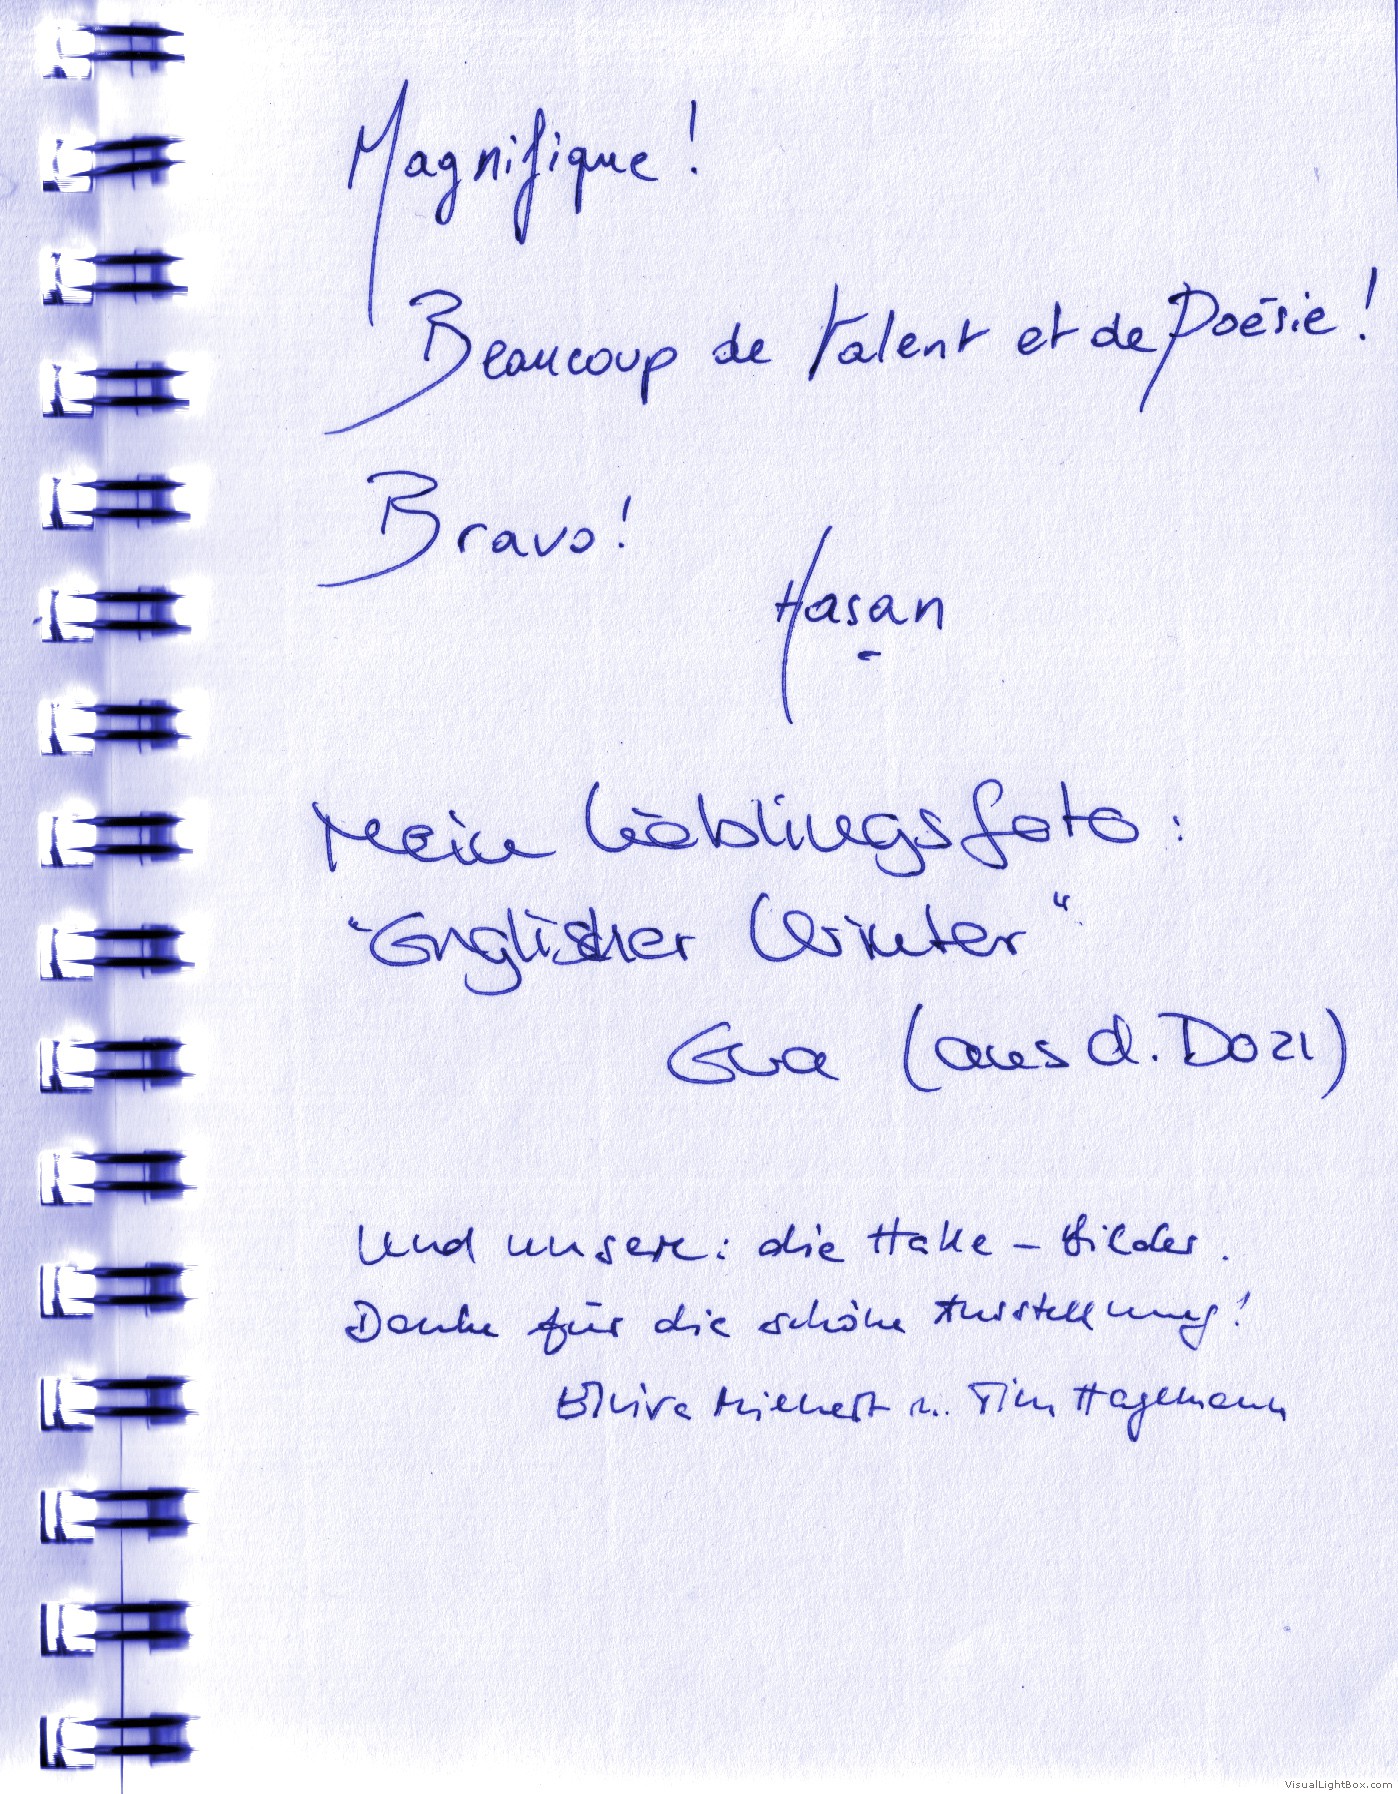 Magnifique !
Beaucoup de talent et de Poésie !
Bravo !
Hasan
Mein Lieblingsfoto :
"Englischer Winter"
Eva (aus d. Dozi)
Und unsere : die Hake - Bilder .
Danke für die schöne Ausstellung !
Elvira u. Tim Hagemann
VisualLightBox.com